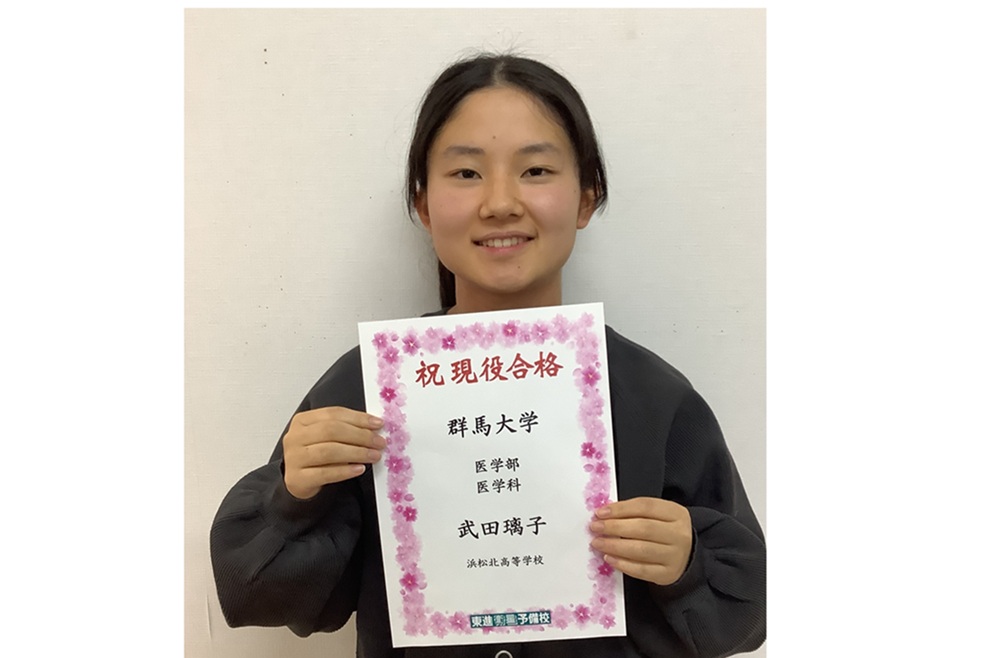 祝現役合格
群馬大学
医学部
医学科
武田璃子
浜松北高等学校
東進衛星予備校